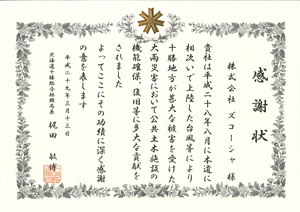 感謝状
株式会社 ズコーシャ 様
貴社は平成二十八年八月に本道に
相次いで上陸した台風等により
十勝地方が甚大な被害を受けた
大雨災害において公共土木施設の
機能確保、復旧等に多大な貢献を
されました
よってここにその功績に深く感謝
の意を表します
平成二十九年三月十三日
北海道十勝総合振興局長
梶田 敏博